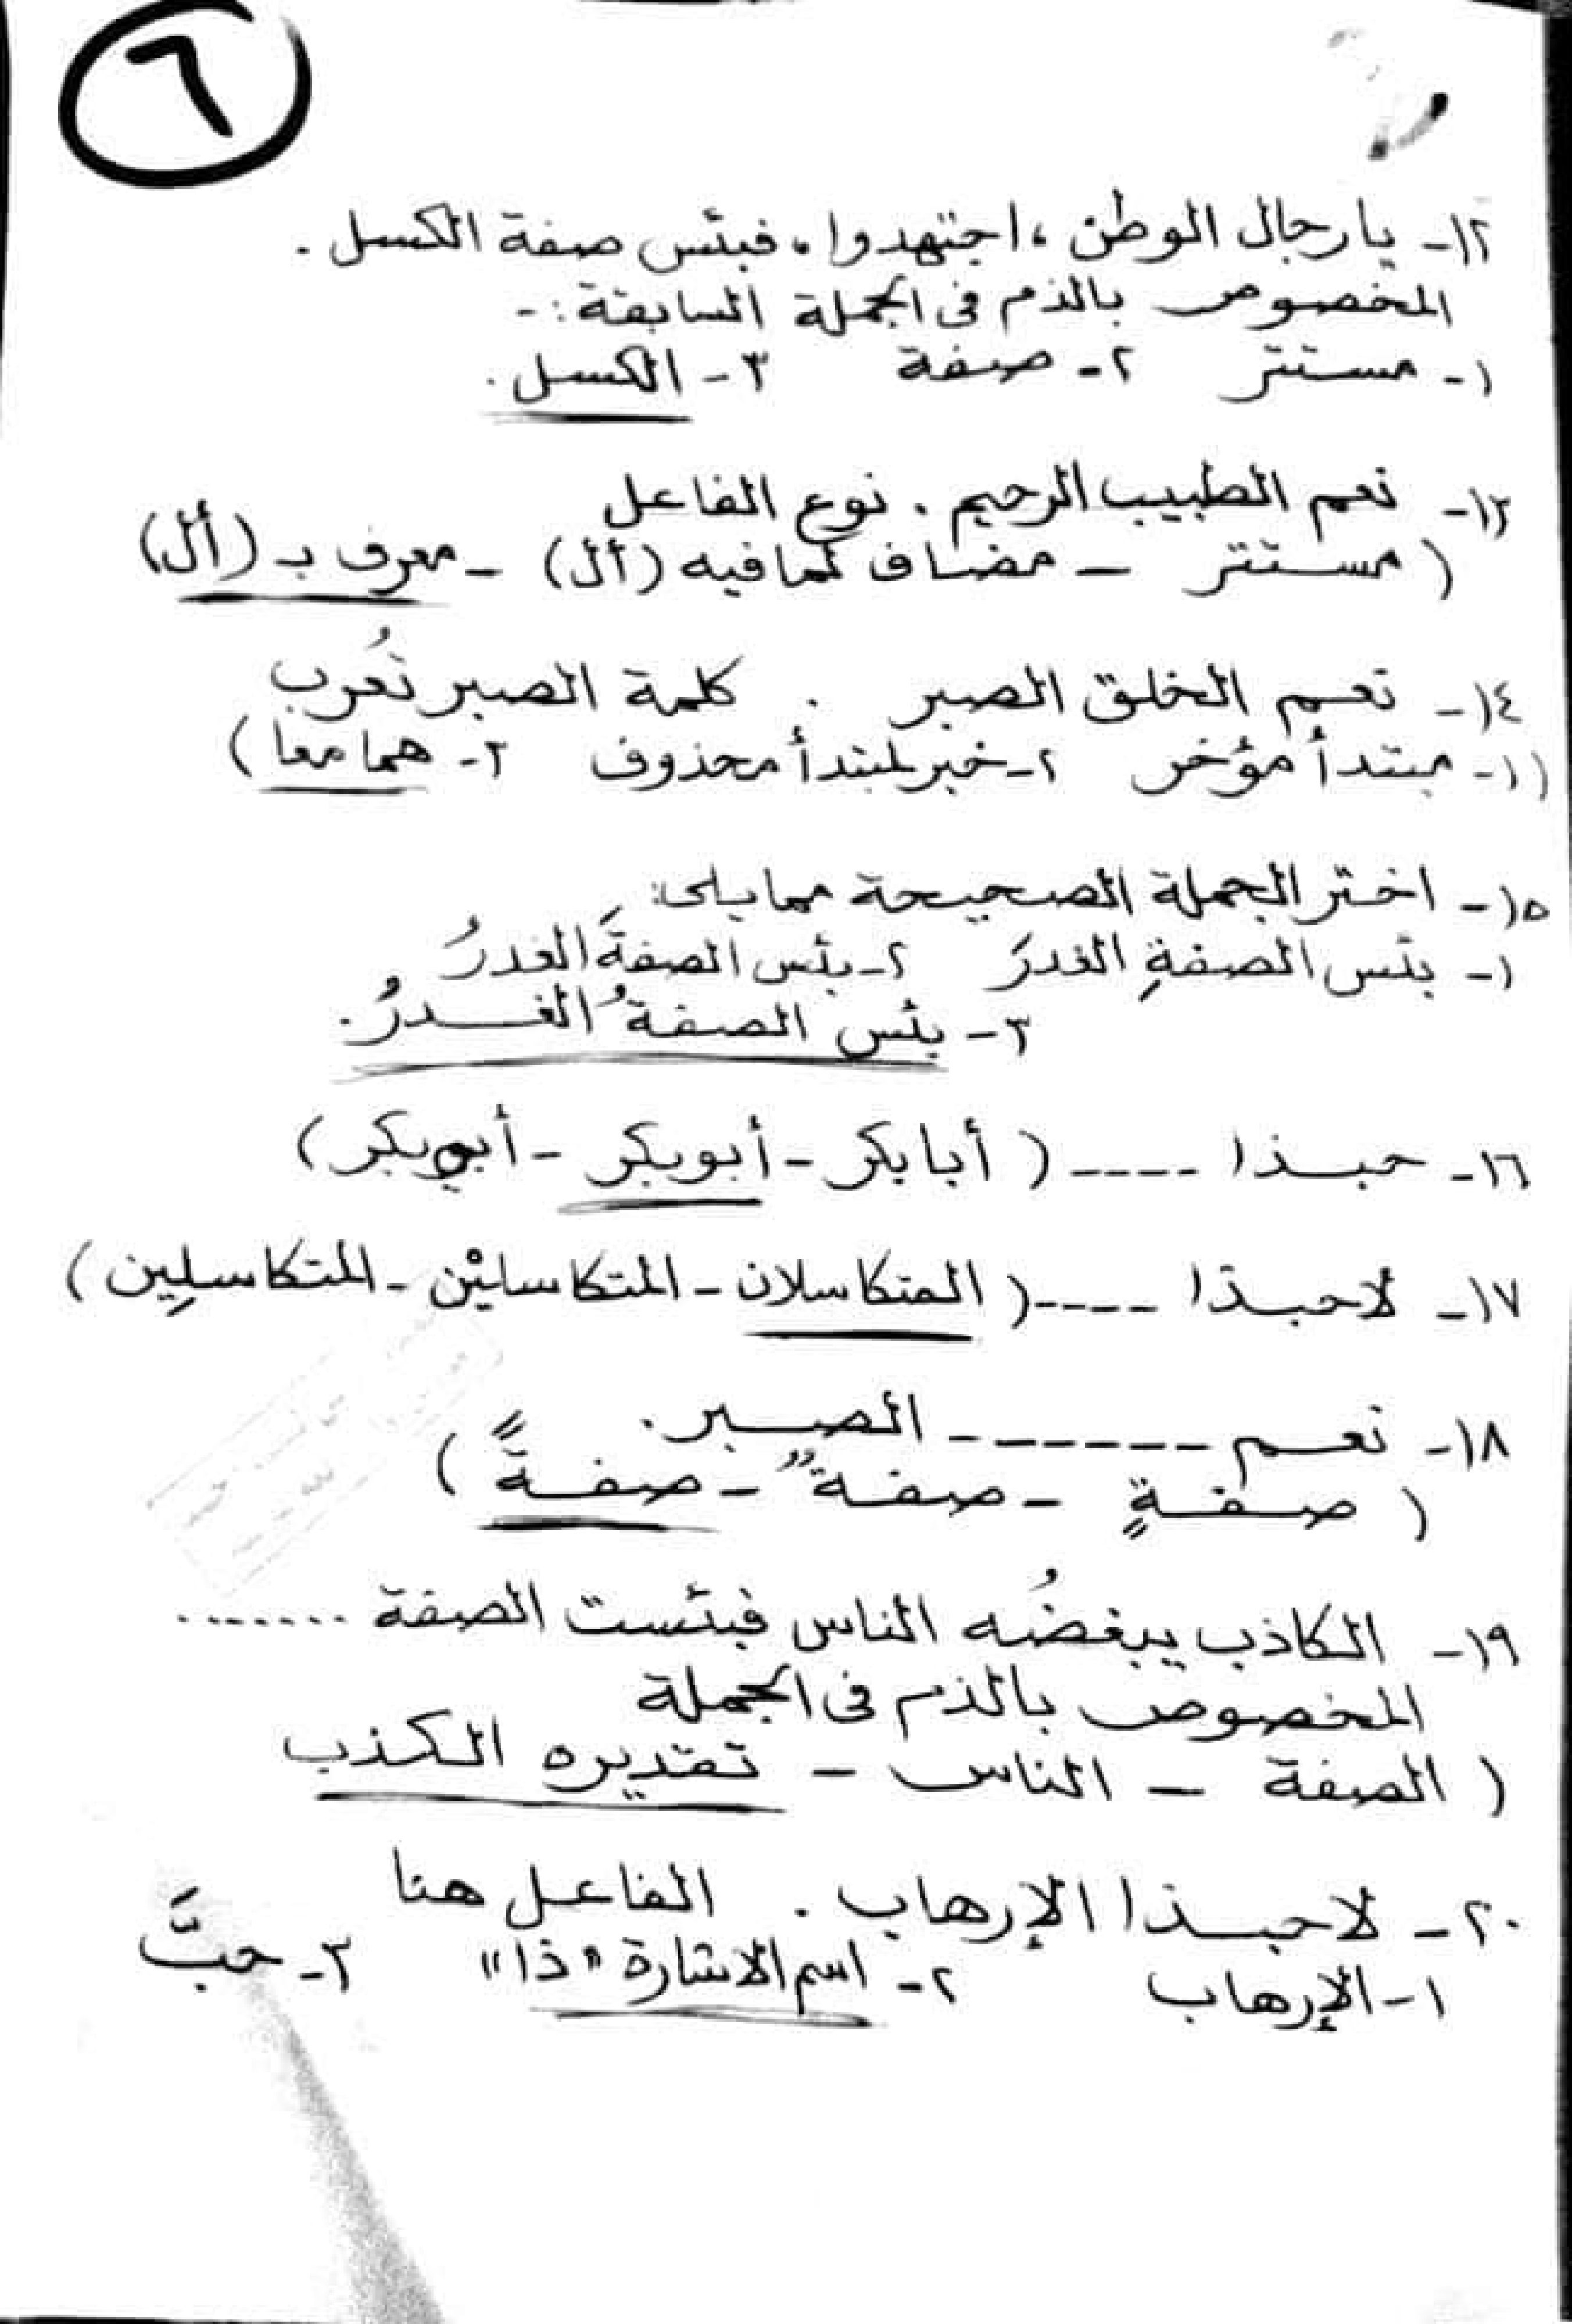 ٦
١٢- يا رجال الوطن، اجتهدوا، فبئس صفة الكسل.
المخصوص بالذم فى الجملة السابقة:-
١- مستتر ٢- صفة ٣- الكسل.
١٣- نعم الطبيب الرحيم. نوع الفاعل
( مستتر - مضاف لما فيه (أل) - معرف بـ (أل)
١٤- نعم الخلق الصبر. كلمة الصبر تُعرب
(١- مبتدأ مؤخر ٢- خبر لمبتدأ محذوف ٣- هما معا )
١٥- اختر الجملة الصحيحة مما يلى:
١- بئس الصفةِ الغدرَ ٢- بئس الصفةَ الغدرُ
٣- بئس الصفةُ الغدرُ.
١٦- حبذا ---- ( أبا بكر - أبو بكر - أبى بكر )
١٧- لا حبذا ---- ( المتكاسلان - المتكاسليْن - المتكاسلِين )
١٨- نعم ------- الصبر.
( صفةٍ - صفةٌ - صفةً )
١٩- الكاذب يبغضُه الناس فبئست الصفة .......
المخصوص بالذم فى الجملة
( الصفة - الناس - تقديره الكذب
٢٠- لا حبذا الإرهاب. الفاعل هنا
١- الإرهاب ٢- اسم الاشارة "ذا" ٣- حبَّ